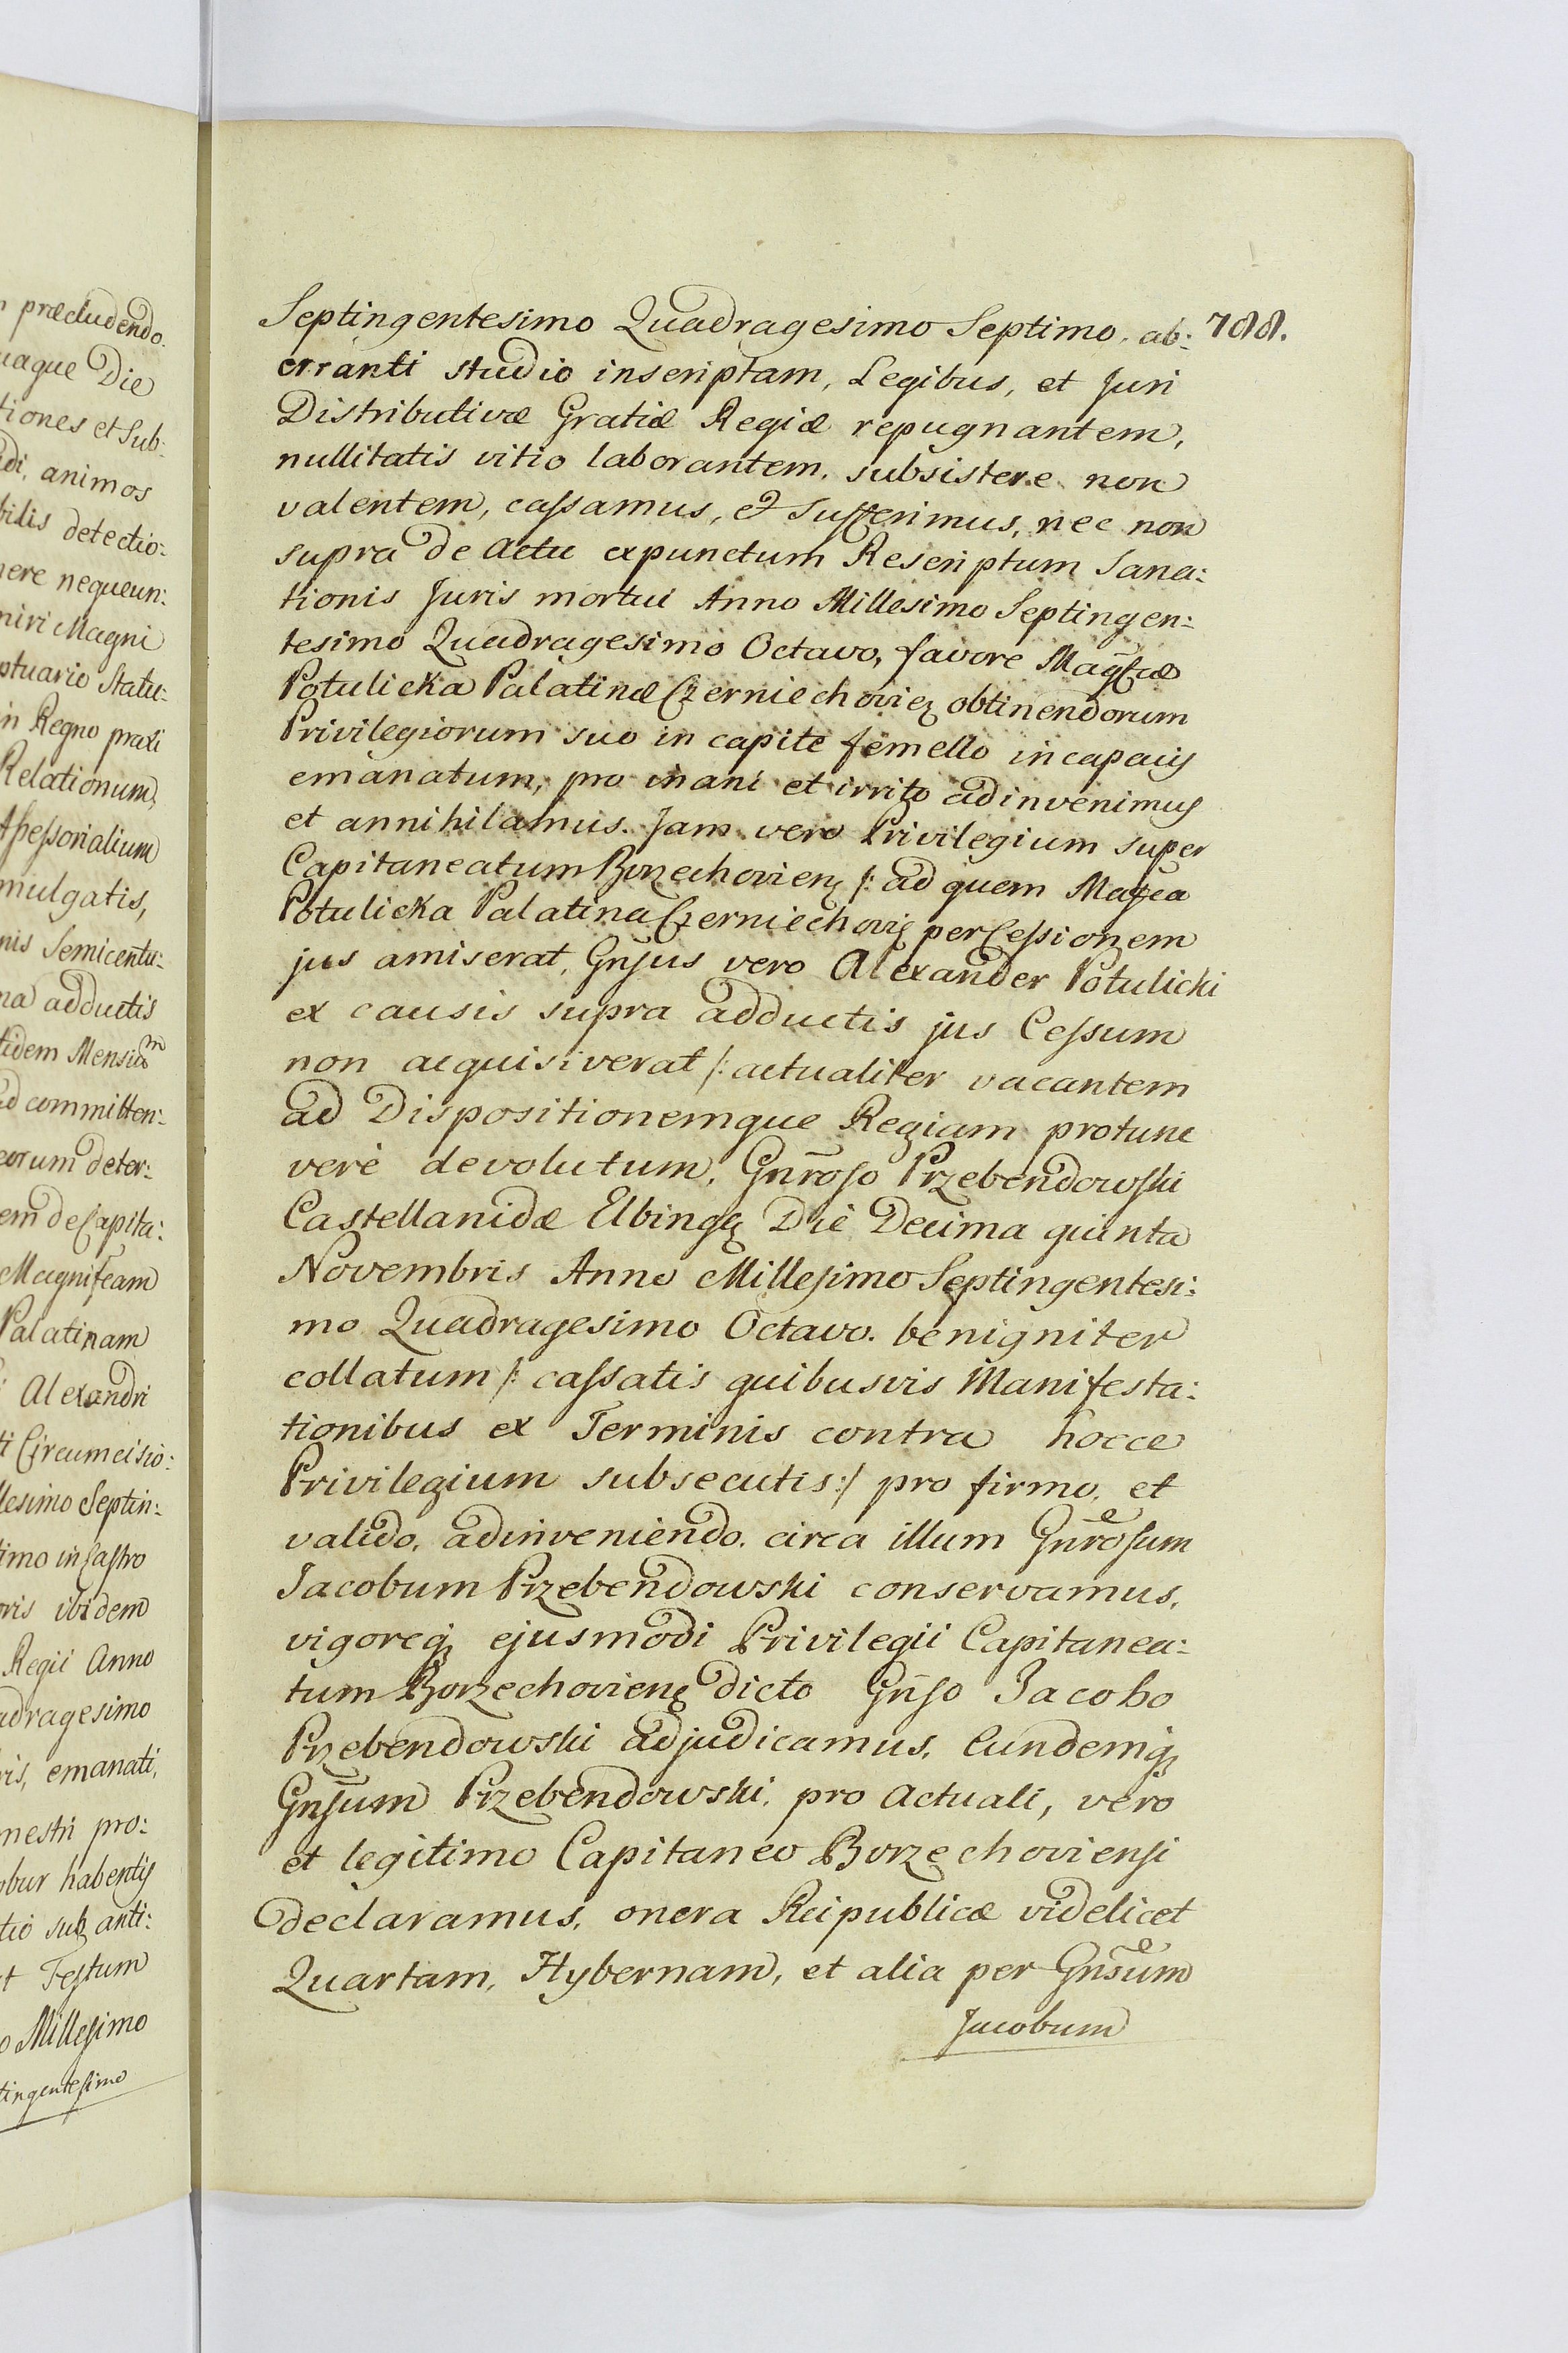 præcludendo.
uaque Die
tiones et Sub:
di, animos
bilis detectio:
nere nequeun:
niri Magni
ptuario Statu:
in Regno praxi
Relationum,
Aſseſsorialium
mulgatis,
nis Semicentu:
na adductis
tidem Mensium
ad committen:
eorum deter:
em de Capita:
Magnifcam
Palatinam
Alexandri
ti Circumcisio:
llesimo Septin:
timo in Caſtro
oris ibidem
Regii Anno
adragesimo
ris, emanati,
mestri pro:
obur habentis
tio sub anti:
t Festum
o Milleſimo
tingenteſimo
788.
Septingentesimo Quadragesimo Septimo, ab:
erranti studio inscriptam, Legibus, et Juri
Distributivæ Gratiæ Regiæ repugnantem,
nullitatis vitio laborantem, subsistere non
valentem, caſsamus, et Sufferimus, nec non
supra de Actu expunctum Rescriptum Sana:
tionis Juris mortui Anno Millesimo Septingen:
tesimo Quadragesimo Octavo, favore Magfcæ
Potulicka Palatinæ Czerniechovieņ obtinendorum
Privilegiorum suo in capite femello incapacis
emanatum, pro inani et irrito adinvenimus
et annihilamus. Jam vero Privilegium super
Capitaneatum Borzechovieņ /: ad quem Magfca
Potulicka Palatina Czerniechovieņ per Ceſsionem
jus amiserat, Gnſus vero Alexander Potulicki
ex causis supra adductis jus Ceſsum
non acquisiverat /: actualiter vacantem
ad Dispositionemque Regiam protunc
verè devolutum, Gnroſo Przebendowſki
Castellanidæ Elbingeņ Die Decima quinta
Novembris Anno Milleſimo Septingentesi:
mo Quadragesimo Octavo. benigniter
collatum /: caſsatis quibusvis Manifesta:
tionibus ex Terminis contra hocce
Privilegium subsecutis :/ pro firmo, et
valido, adinveniendo, circa illum Gnroſum
Jacobum Przebendowski conservamus,
vigoreq; ejusmodi Privilegii Capitanea:
tum Borzechovieņ dicto Gnſo Jacobo
Przebendowski adjudicamus, Eundemq;
Gnſum Przebendowski, pro Actuali, vero
et legitimo Capitaneo Borzechovienſi
declaramus, onera Reipublicæ videlicet
Quartam, Hybernam, et alia per Gnsum
Jacobum